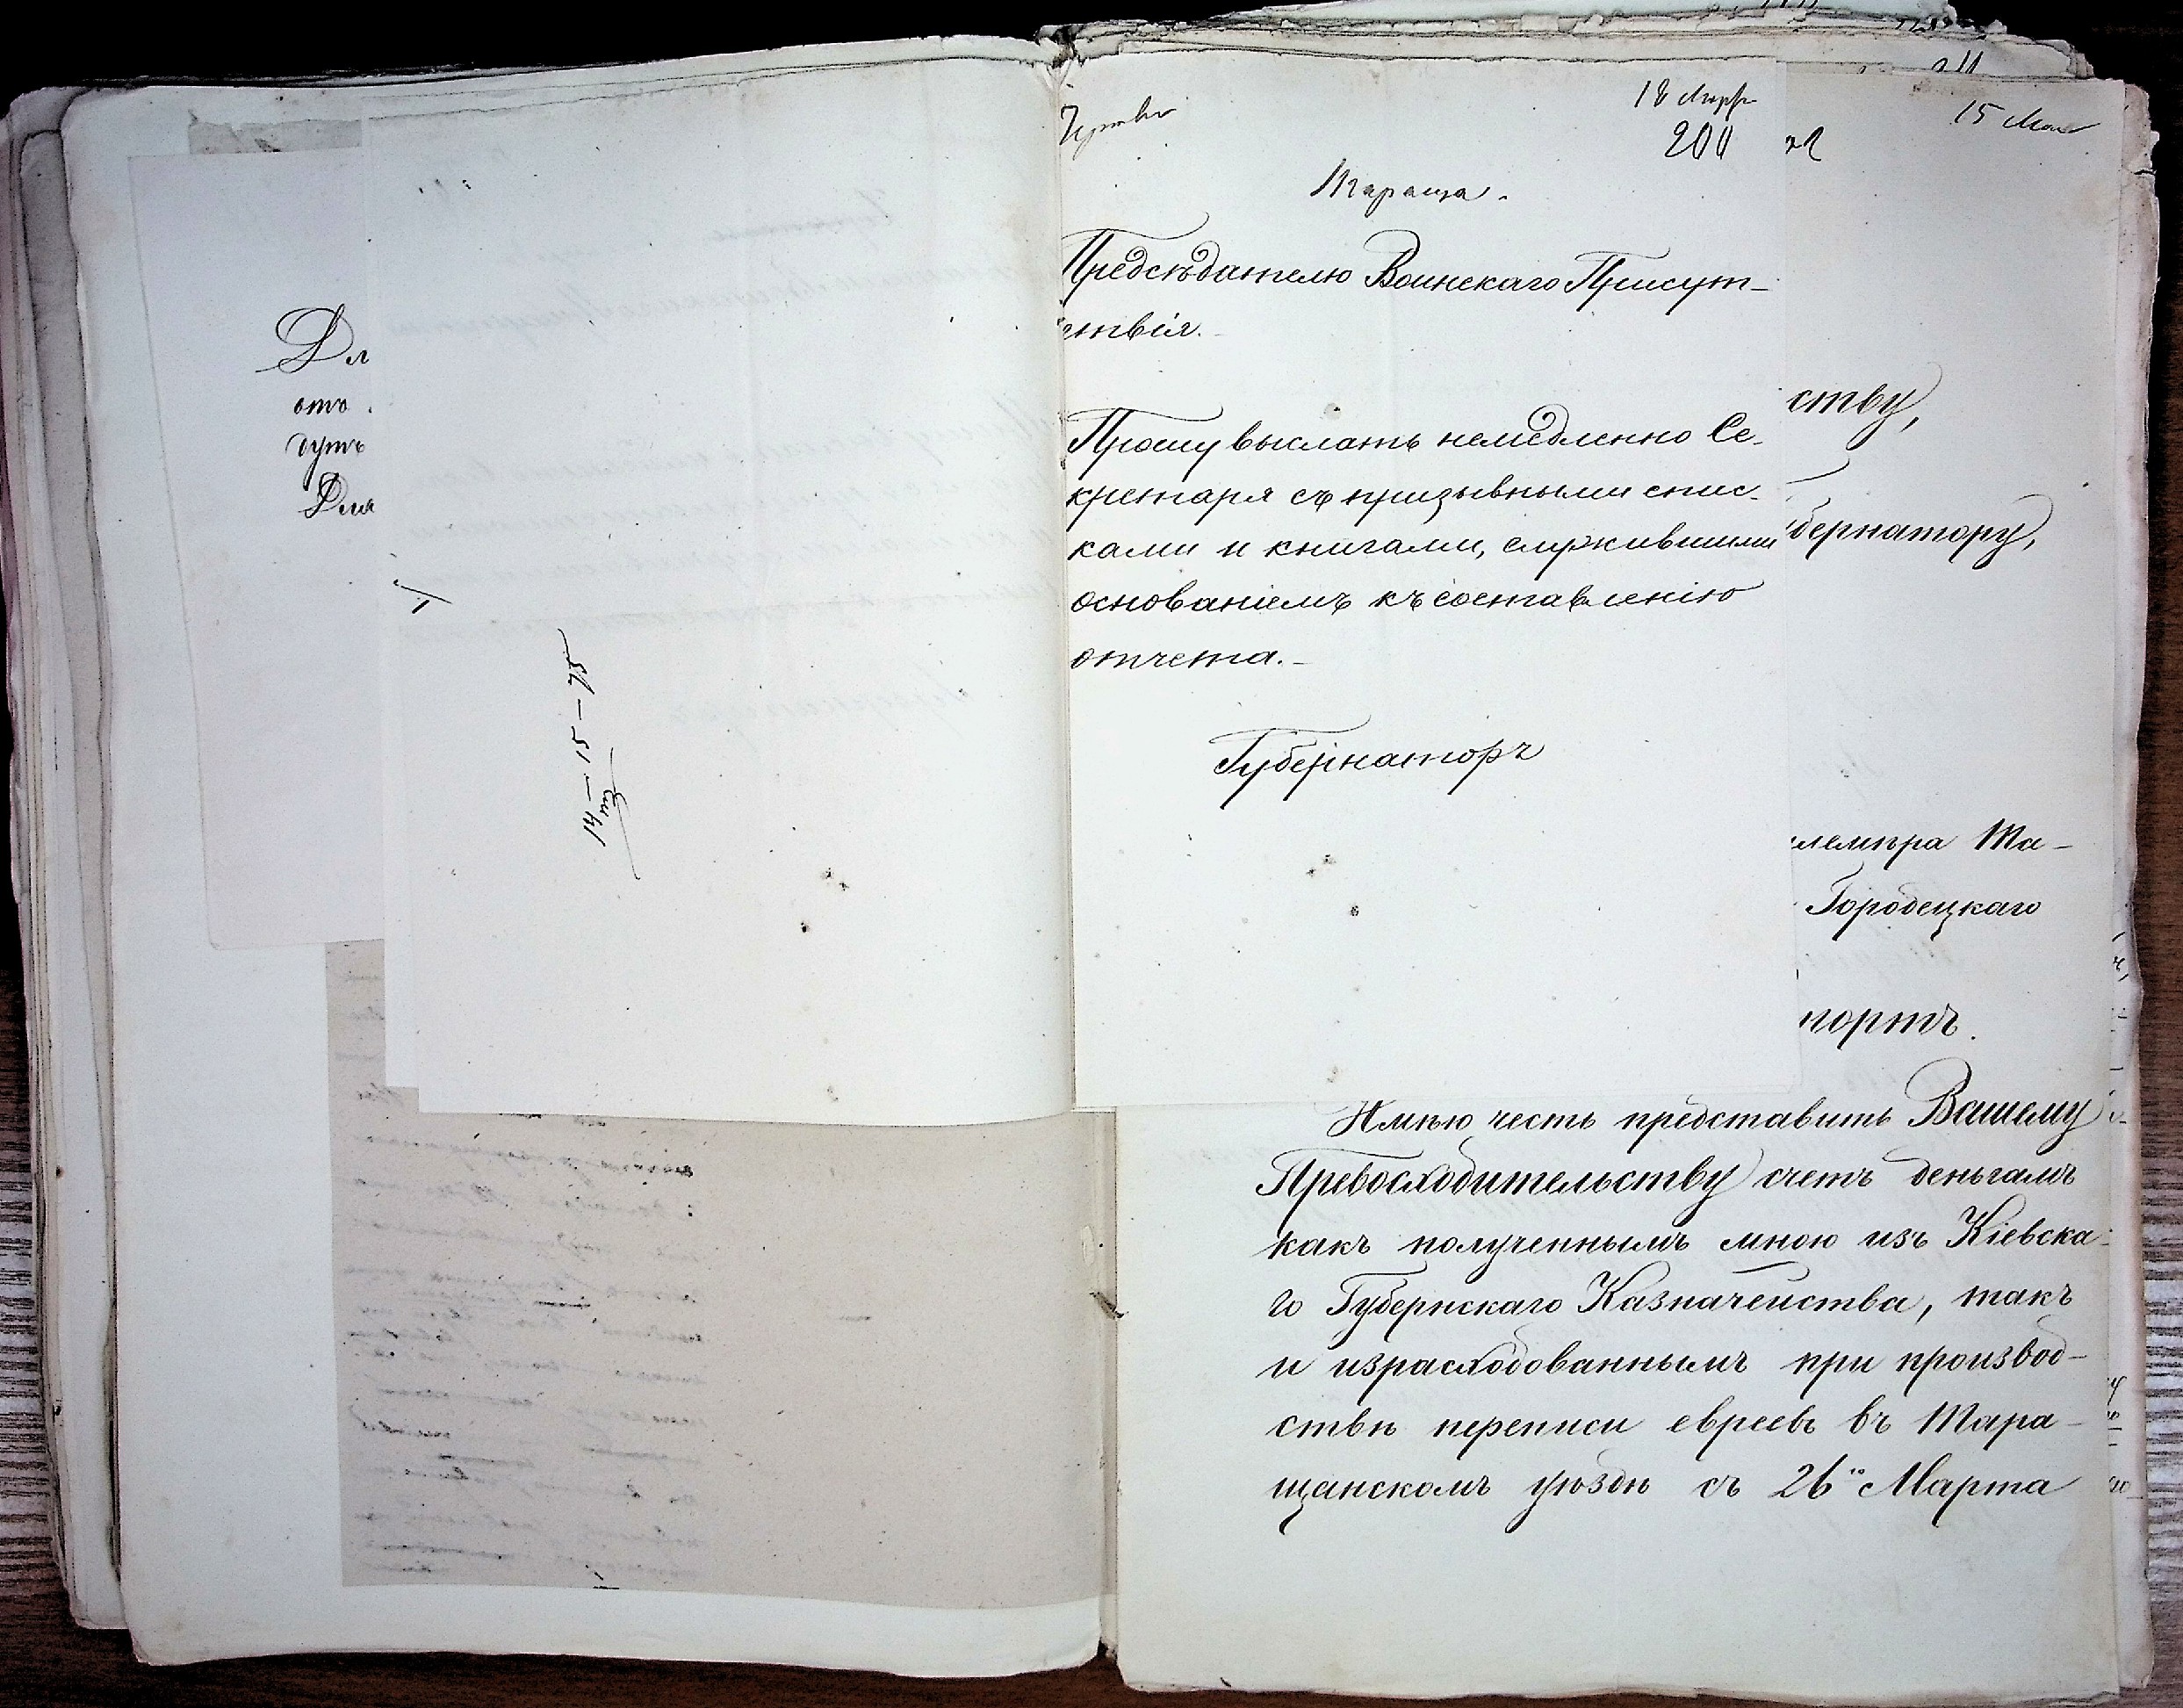 Дл
отъ
дутъ
Для
14 – 15 – 75
18 Марта
200
Тараща.
Предсѣдателю Воинскаго Присут-
ствія.
Прошу выслать немедленно Се-
кретаря съ призывными спис-
ками и книгами, служившими
основаніемъ къ составленію
отчета.
Губернаторъ
15 Мая
ству,
бернатору,
Та-
Городецкаго
портъ.
Имѣю честь представить Вашему
Превосходительству счетъ деньгамъ
какъ полученнымъ мною изъ Кіевска-
го Губернскаго Казначейства, такъ
и израсходованнымъ при производ-
ствѣ переписи евреевъ въ Тара-
щанскомъ уѣздѣ съ 26го Марта